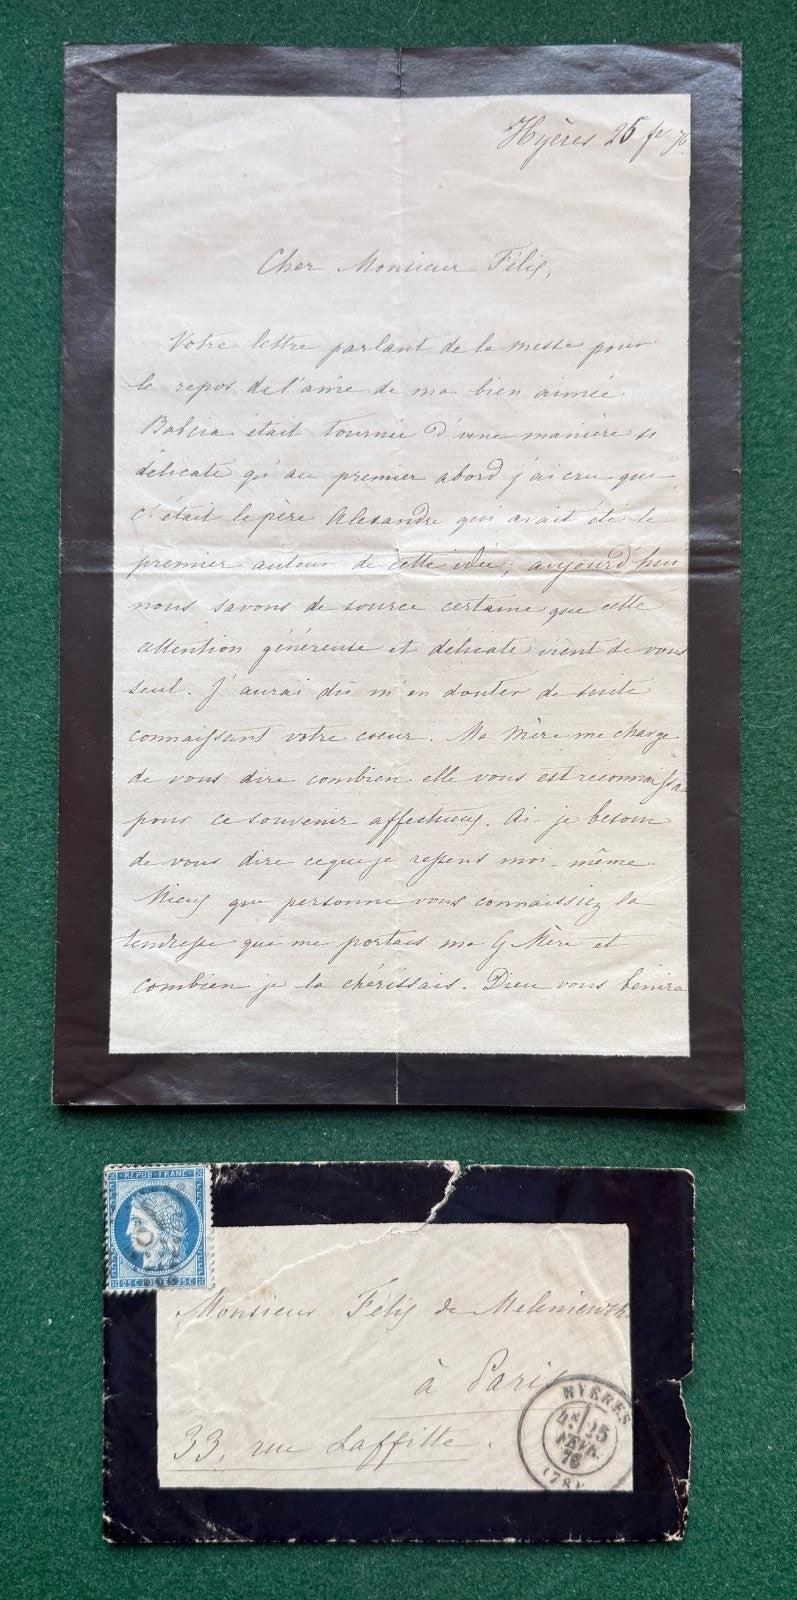 Hyères 25 fev 76
Cher Monsieur Félix,
Votre lettre parlant de la messe pour
le repos de l'âme de ma bien aimée
Babcia était tournée d'une manière si
délicate qu'au premier abord j'ai cru que
c'était le père Alexandre qui avait été le
premier auteur de cette idée; aujourd'hui
nous savons de source certaine que cette
attention généreuse et délicate vient de vous
seul. J'aurai dû m'en douter de suite
connaissant votre coeur. Ma Mère me charge
de vous dire combien elle vous est reconnaissan
pour ce souvenir affectueux. Ai-je besoin
de vous dire ce que je ressens moi-même.
Mieux que personne vous connaissiez la
tendresse que me portais ma G Mère et
combien je la chérissais. Dieu vous bénira
REPUB FRANC
25 C POSTES 25 C
Monsieur Félix de
à Paris
HYERES
4E 25
FEVR.
76
(78)
33, rue Laffitte.